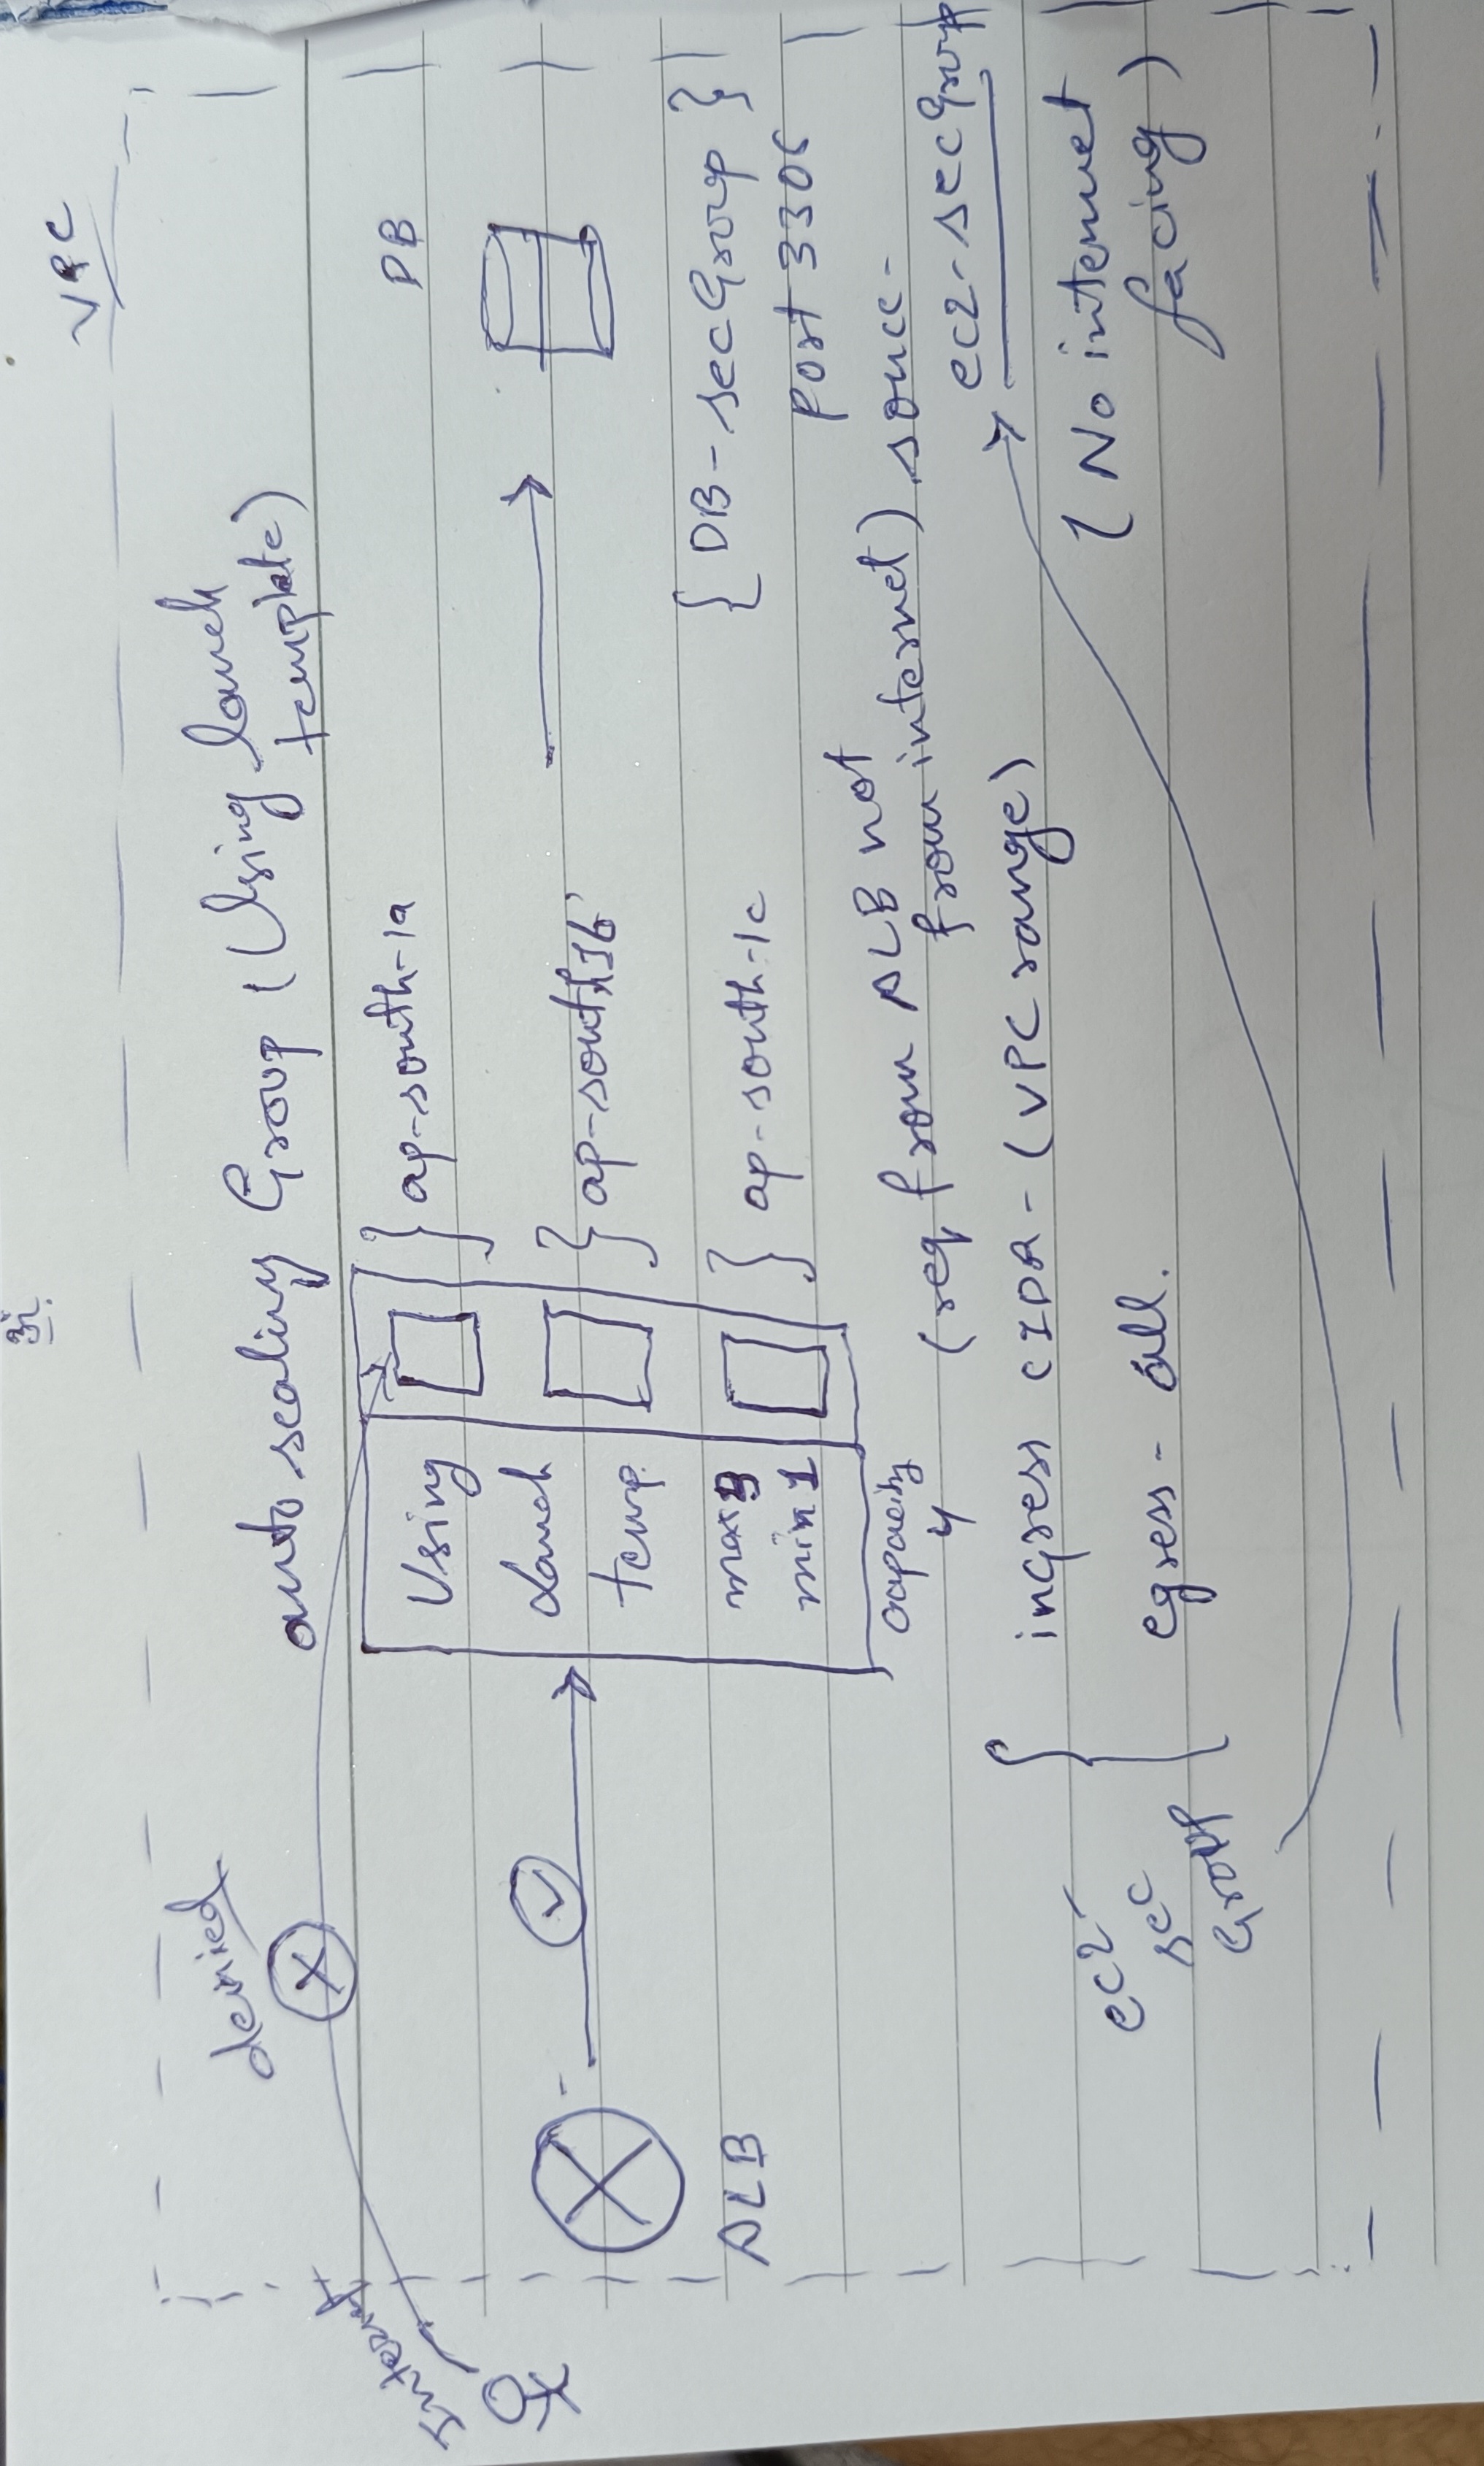 VPC
auto scaling Group (Using launch
template)
denied
Internet
Using
Launch
temp.
max 3
min 1
capacity
4
} ap-south-1a
} ap-south-1b
} ap-south-1c
DB
ALB
{ DB-secGroup }
Port 3306
source -
ec2-secGroup
(No internet
facing)
(req from ALB not
from internet)
ec2-
sec
Group
{
ingress CIDR - (VPC range)
egress - all.